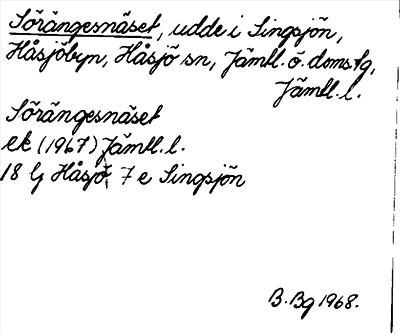 Sörängesnäset, udde i Singsjön,
Håsjöbyn, Håsjö sn, Jämtl. ö. doms.tg,
Jämtl. l.
Sörängesnäset
ek (1967) Jämtl. l.
18 G Håsjö, 7 e Singsjön
B. Bg 1968.